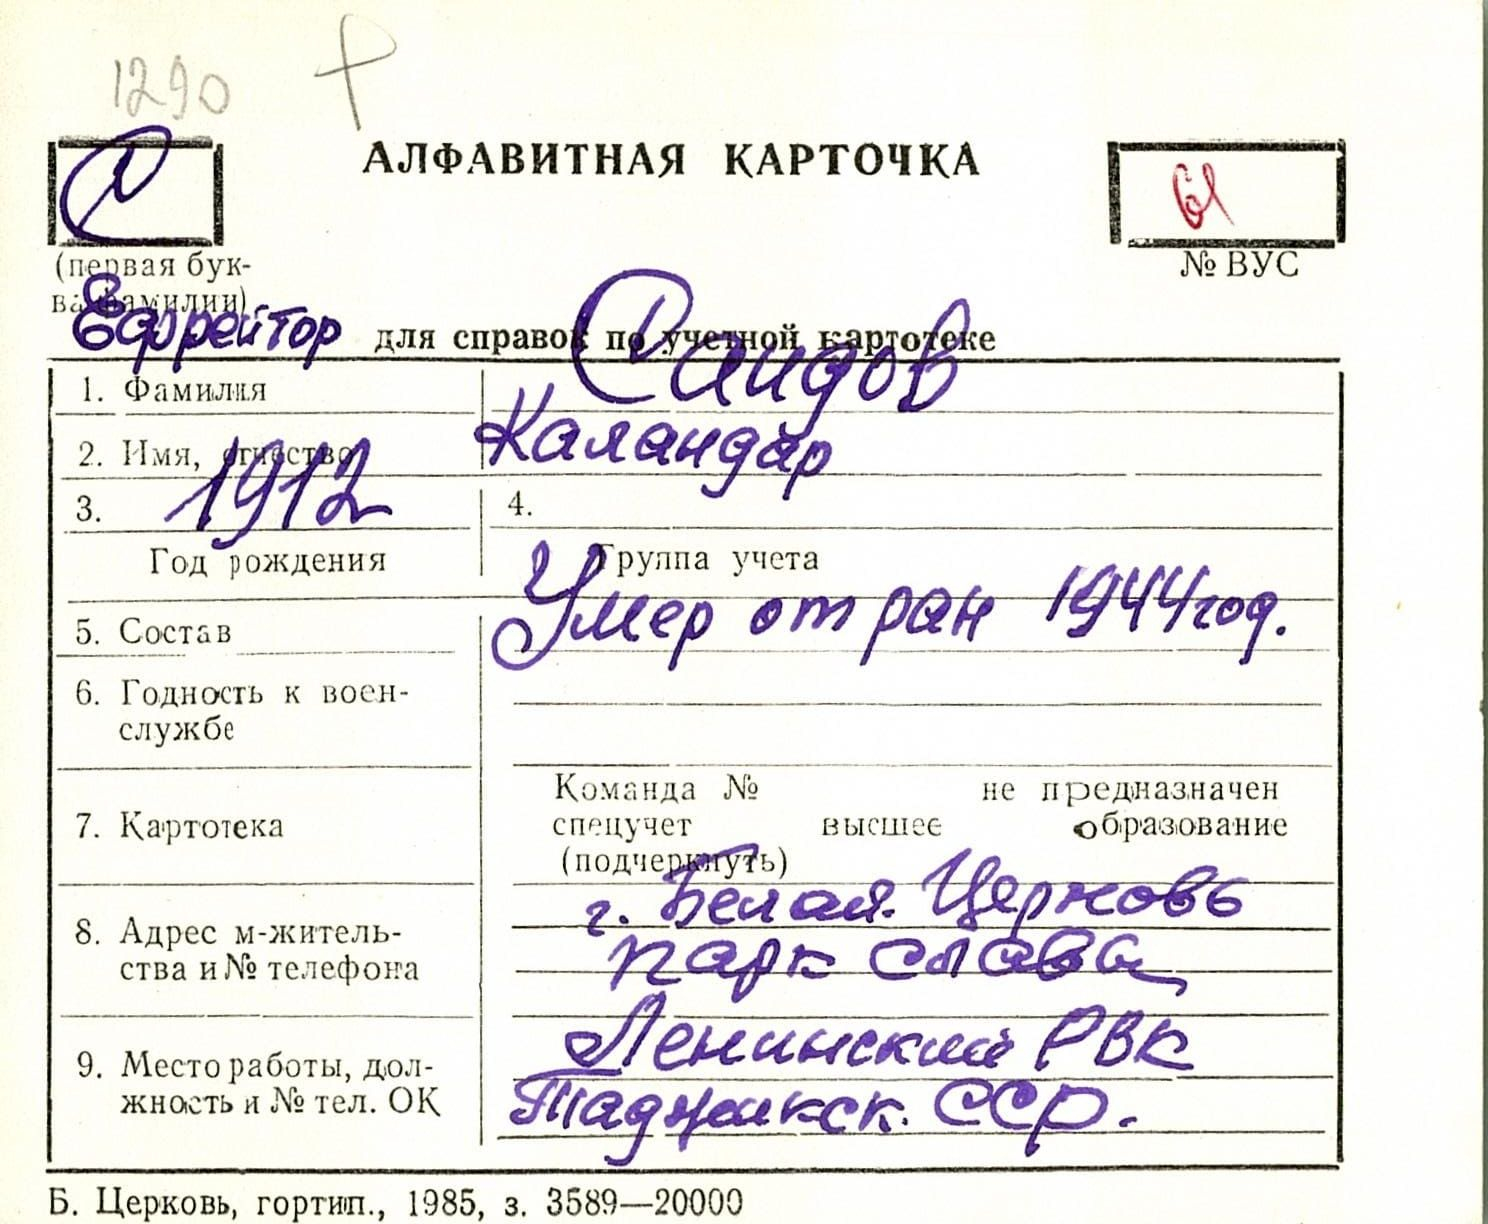 1290
С
АЛФАВИТНАЯ КАРТОЧКА
(первая бук-
ва фамилии)
№ ВУС
Ефрейтор
для справок по учетной картотеке
1. Фамилия Саидов
2. Имя, отчество Каландар
3. 1912 4.
Год рождения Группа учета
Умер от ран 1944 год.
5. Состав
6. Годность к воен-
службе
7. Картотека
Команда № не предназначен
спецучет высшее образование
(подчеркнуть)
8. Адрес м-житель-
ства и № телефона
г. Белая Церковь
парк Слава
9. Место работы, дол-
жность и № тел. ОК
Ленинский РВК
Таджикск. ССР.
Б. Церковь, гортип., 1985, з. 3589—20000